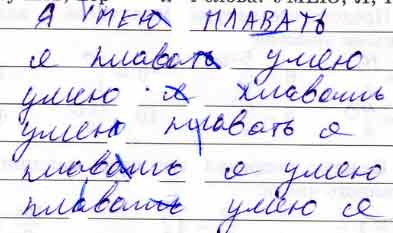 Я УМЕЮ ПЛАВАТЬ
я плавать умею
умею я плавать
умею плавать я
плавать я умею
плавать умею я